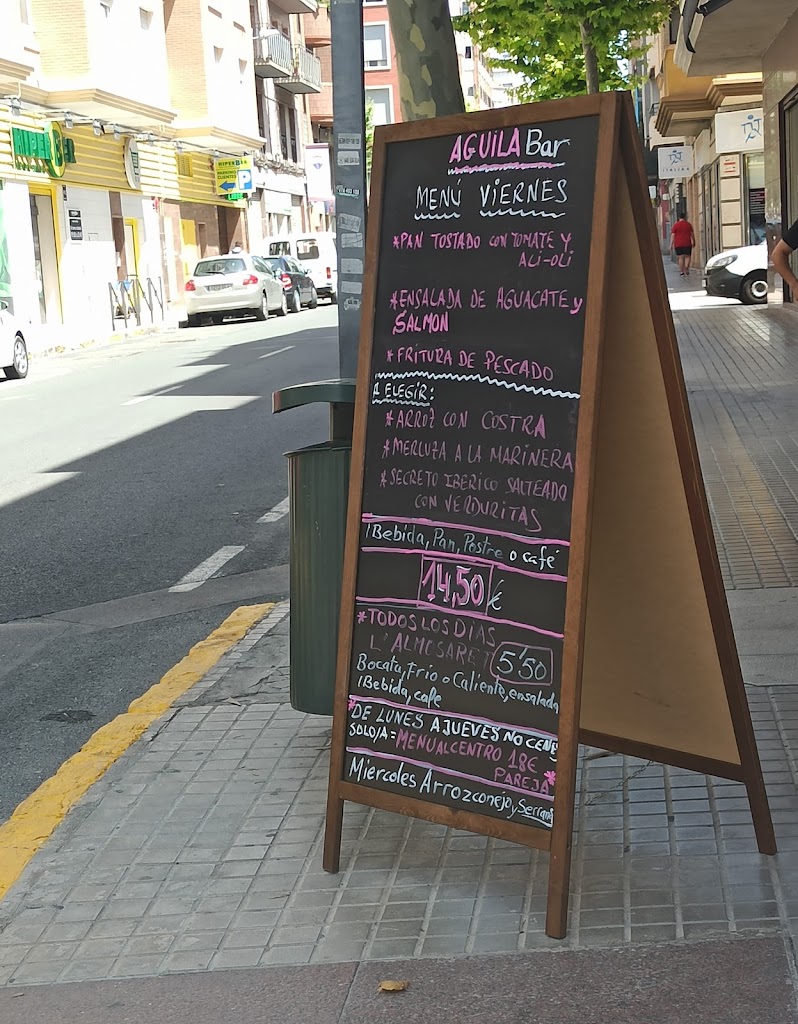 AGUILA Bar
MENÚ VIERNES
*PAN TOSTADO CON TOMATE Y
ALI-OLI
*ENSALADA DE AGUACATE y
SALMON
*FRITURA DE PESCADO
A ELEGIR:
*ARROZ CON COSTRA
*MERLUZA A LA MARINERA
*SECRETO IBERICO SALTEADO
CON VERDURITAS
1Bebida, Pan, Postre o café
14,50 €
*TODOS LOS DIAS
L'ALMOSARET 5'50
Bocata, Frio o Caliente, ensalada
1Bebida, cafe
*DE LUNES A JUEVES NO CENES
SOLO/A = MENUALCENTRO 18€
PAREJA *
Miercoles Arrozconejo y Serrana
HIPER BER
P